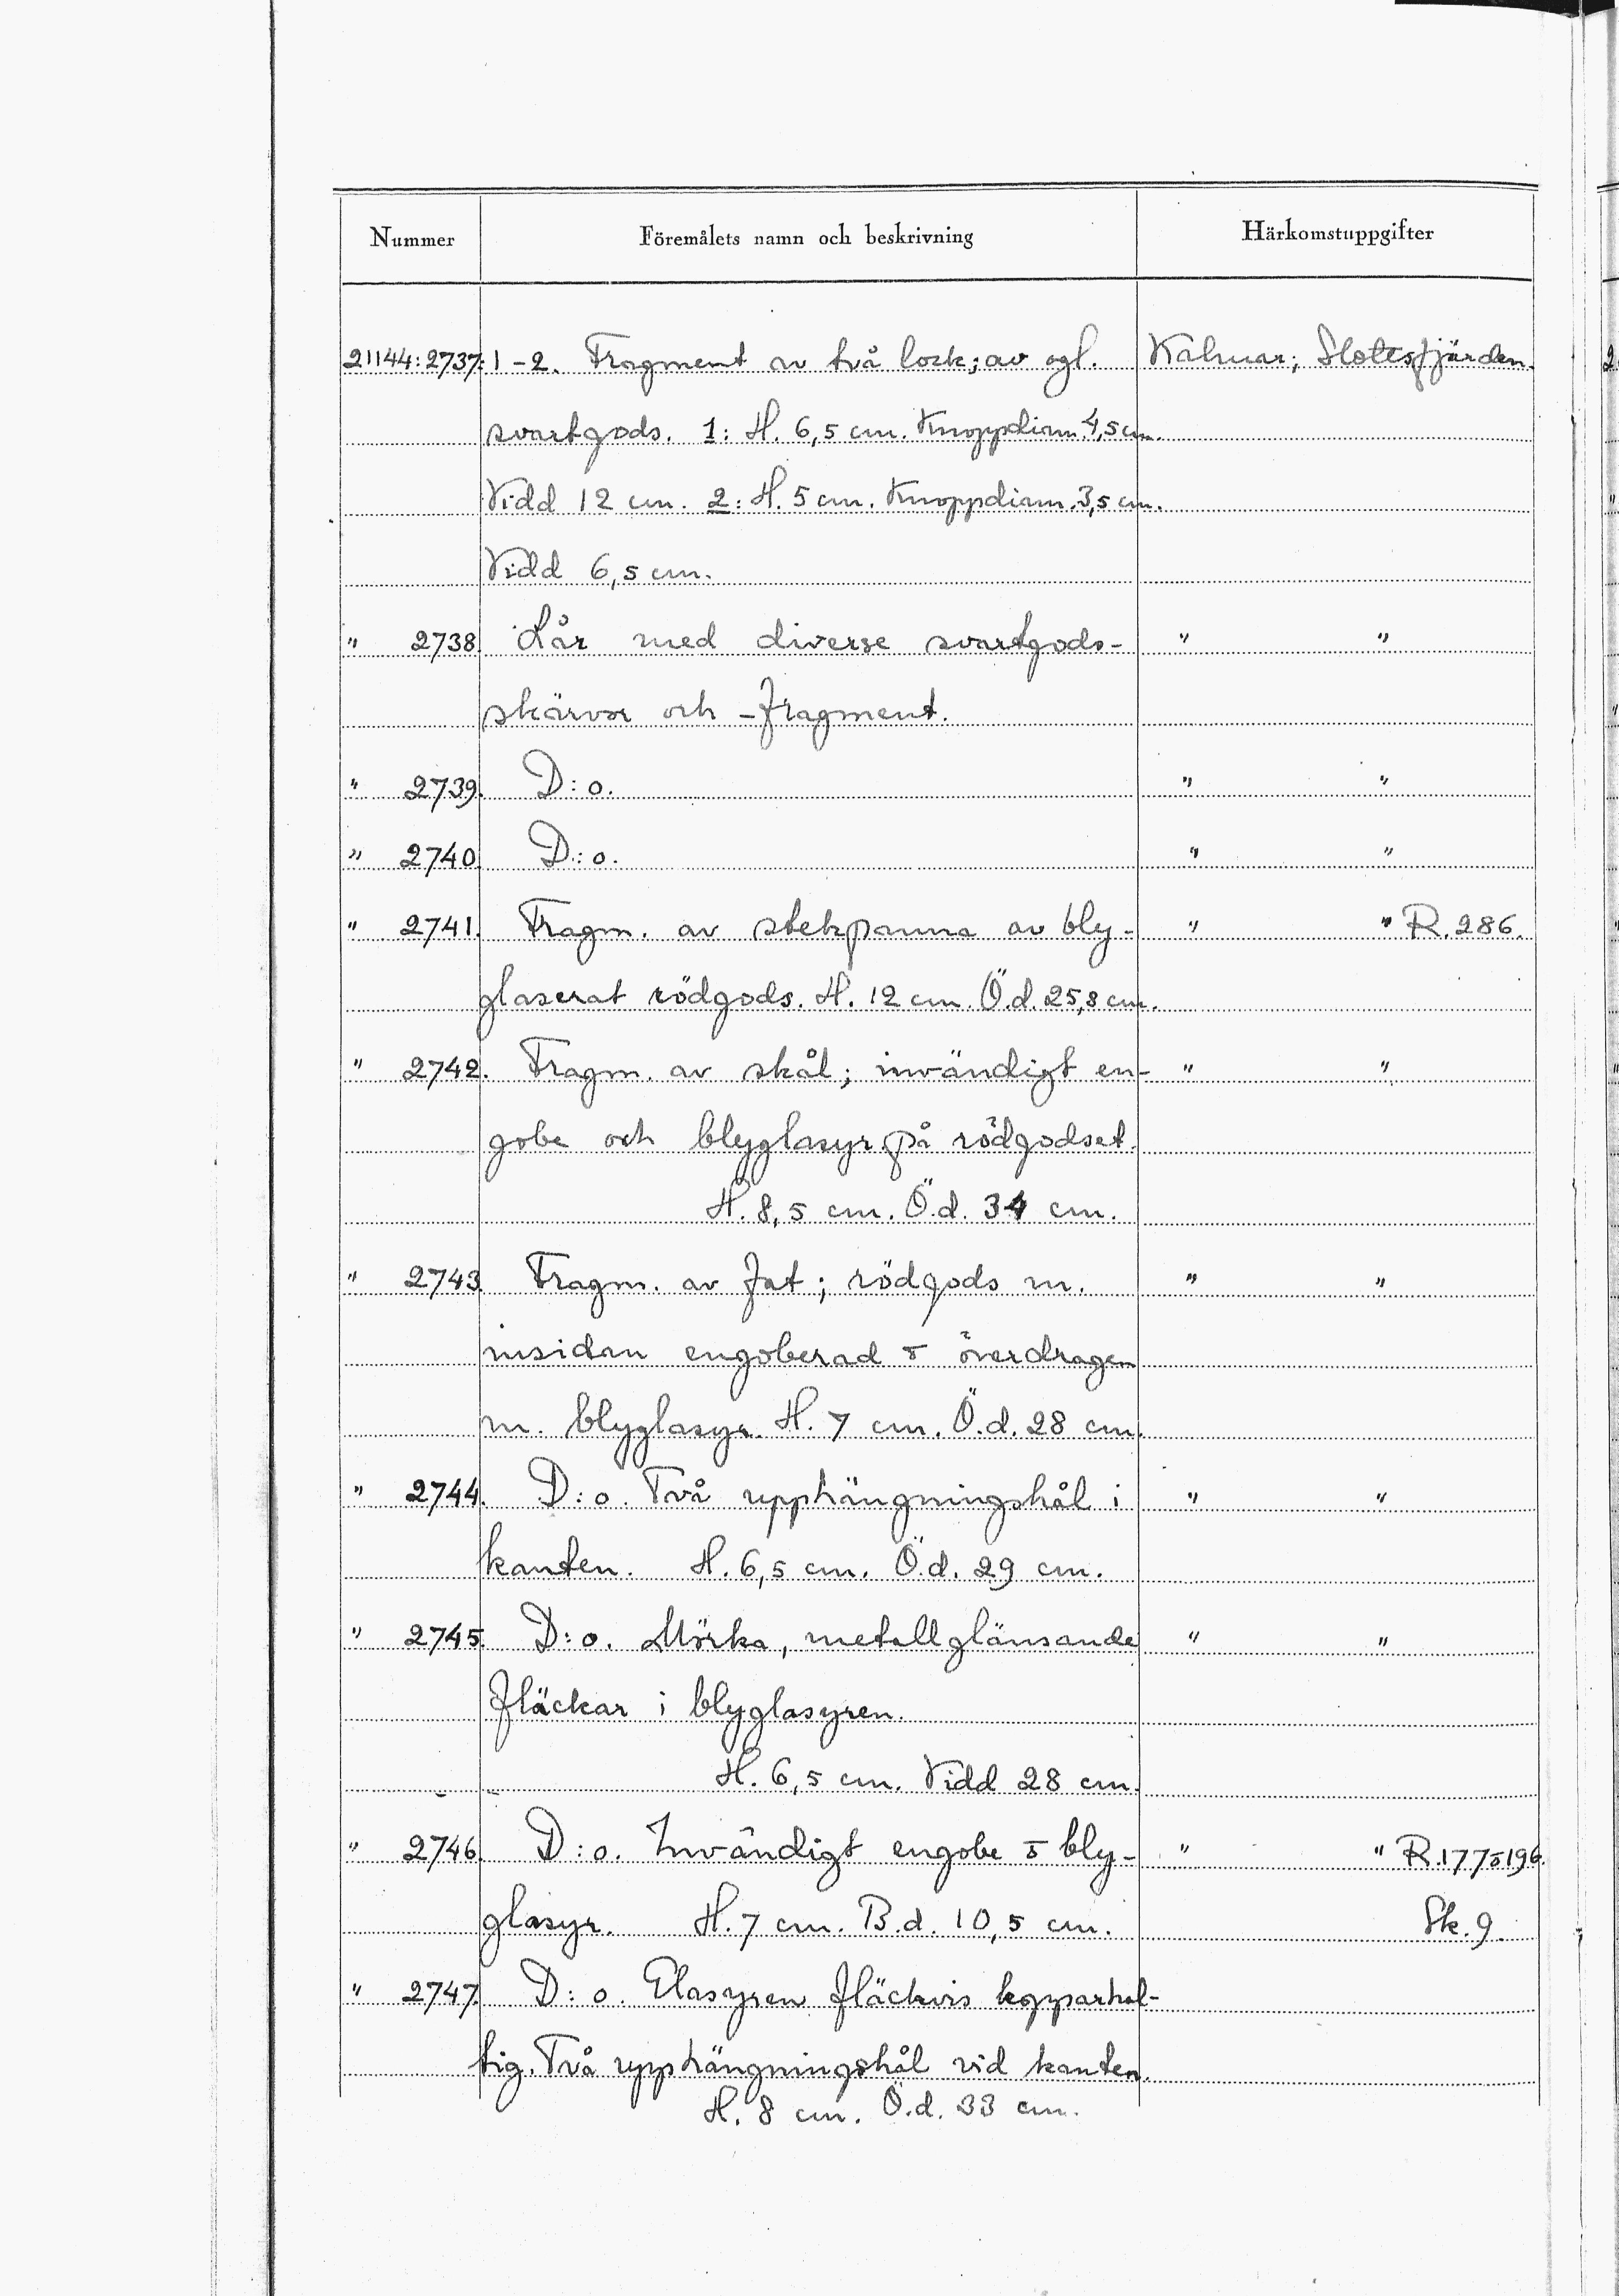 Nummer Föremålets namn och beskrivning Härkomstuppgifter
21144:2737:1-2. Fragment av två lock; av ogl. Kalmar; Slottsfjärden.
svartgods. 1: H. 6,5 cm. Knoppdiam. 4,5 cm.
Vidd 12 cm. 2: H. 5 cm. Knoppdiam. 3,5 cm.
Vidd 6,5 cm.
" 2738. Lår med diverse svartgods- " "
skärvor och -fragment.
" 2739. D:o. " "
" 2740. D:o. " "
" 2741. Fragm. av stekpanna av bly- " " R. 286.
glaserat rödgods. H. 12 cm. Ö.d. 25,8 cm.
" 2742. Fragm. av skål; invändigt en- " "
gobe och blyglasyr på rödgodset.
H. 8,5 cm. Ö.d. 34 cm.
" 2743. Fragm. av fat; rödgods m. " "
insidan engoberad o överdragen
m. blyglasyr. H. 7 cm. Ö.d. 28 cm.
" 2744. D:o. Två upphängningshål i " "
kanten. H. 6,5 cm. Ö.d. 29 cm.
" 2745. D:o. Mörka, metallglänsande " "
fläckar i blyglasyren.
H. 6,5 cm. Vidd 28 cm.
" 2746. D:o. Invändigt engobe o bly- " " R. 177 o 196.
glasyr. H. 7 cm. B.d. 10,5 cm. Sk. 9.
" 2747. D:o. Glasyren fläckvis kopparhal-
tig. Två upphängningshål vid kanten.
H. 8 cm. Ö.d. 33 cm.